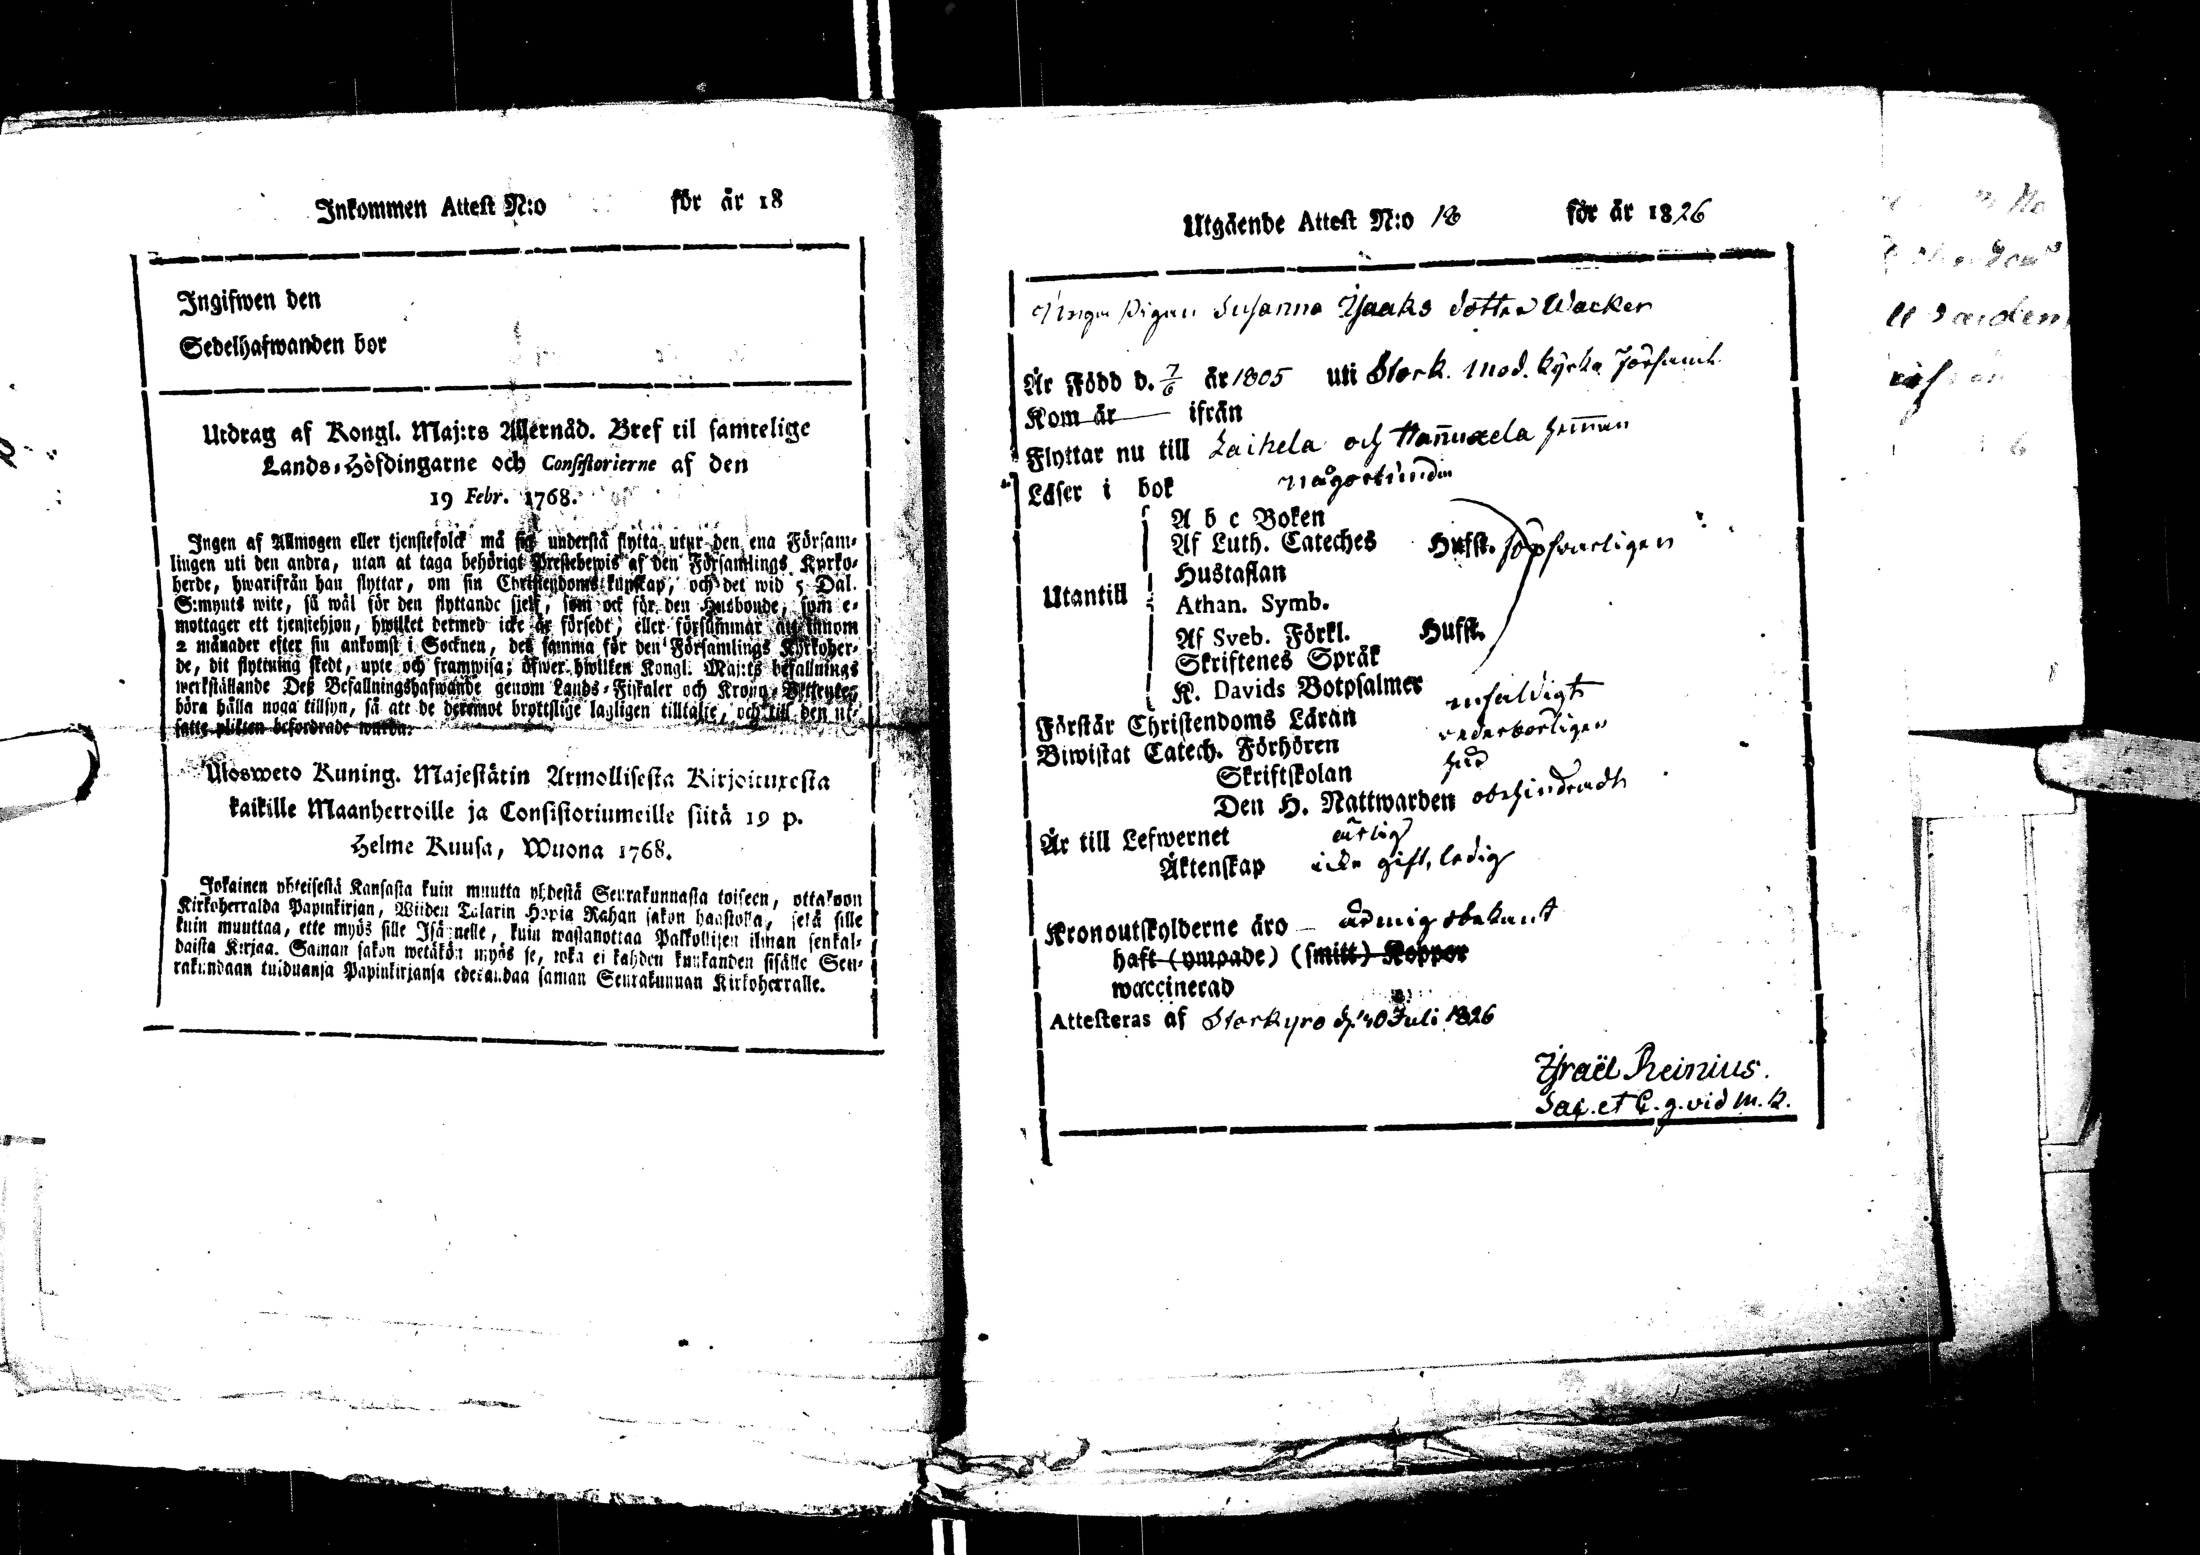 Inkommen Attest N:o för år 18
Ingifwen den
Sedelhafwanden bor
Utdrag af Kongl. Maj:ts Allernåd. Bref til samtelige
Lands-Höfdingarne och Consistorierne af den
19 Febr. 1768.
Ingen af Allmogen eller tjenstefolck må sig understå flytta utur den ena Försam-
lingen uti den andra, utan at taga behörigt Prestebewis af den Församlings Kyrko-
herde, hwarifrån han flyttar, om sin Christendoms kunskap, och det wid 5 Dal.
S:mynts wite, så wäl för den flyttande sjelf, som ock för den Husbonde, som e-
mottager ett tjenstehjon, hwilket dermed icke är försedt, eller försummar att innom
2 månader efter sin ankomst i Socknen, det samma för den Församlings Kyrkoher-
de, dit flyttning skedt, upte och framwisa; öfwer hwilken Kongl. Maj:ts befallnings
werkställande Deß Befallningshafwande genom Lands-Fiskaler och Krono-Betjente,
böra hålla noga tillsyn, så att de deremot brottslige lagligen tilltalte, och till den ut-
satte plikten befordrade warda.
Ulosweto Kuning. Majestätin Armollisesta Kirjoituxesta
kaikille Maanherroille ja Consistoriumeille siitä 19 p.
Helme Kuusa, Wuona 1768.
Jokainen yhteisestä Kansasta kuin muutta yhdestä Seurakunnasta toiseen, ottakoon
Kirkoherralda Papinkirjan, Wiiden Talarin Hopia Rahan sakon haastolla, sekä sille
kuin muuttaa, ette myös sille Isännelle, kuin wastanottaa Palkollisen ilman senkal-
daista Kirjaa. Saman sakon wetäkön myös se, joka ei kahden kuukanden sisälle Seu-
rakundaan tulduansa Papinkirjansa edesandaa saman Seurakunnan Kirkoherralle.
Utgående Attest N:o 18 för år 1826
Pigan Susanna Isaaks dotter Wacker
Är Född d. 7/6 år 1805 uti Stork. Mod. kyrko församl.
Kom år ifrån
Flyttar nu till Laihela och
Läser i bok någorlunda
A b c Boken
Af Luth. Cateches Hufst. försvarligen
Hustaflan
Utantill
Athan. Symb.
Af Sveb. Förkl. Hufst.
Skriftenes Språk
K. Davids Botpsalmer
Förstår Christendoms Läran enfaldigt
Biwistat Catech. Förhören vederbörligen
Skriftskolan
Den H. Nattwarden obehindradt
Är till Lefwernet ärlig
Äktenskap icke gift, ledig
Kronoutskylderne äro obekant
haft (ympade) (smitt) Koppor
waccinerad
Attesteras af Storkyro d. 10 Juli 1826
Israël Reinius.
Sac. et C. g. vid M. K.